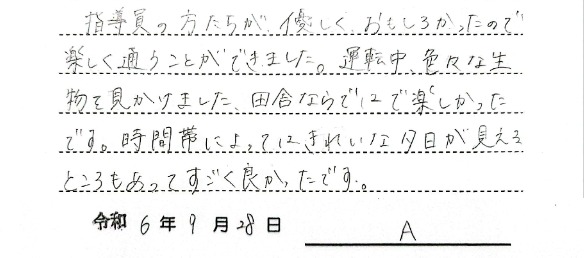 指導員の方たちが、優しく、おもしろかったので
楽しく通うことができました。運転中、色々な生
物を見かけました、田舎ならではで楽しかった
です。時間帯によってはきれいな夕日が見える
ところもあってすごく良かったです。
令和 6 年 9 月 28 日 A